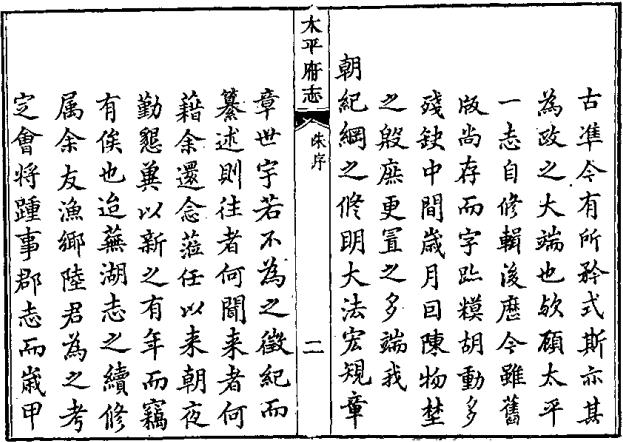 古凖今有所矜式斯亦其
為政之大端也欤顧太平
一志自修輯後歴今雖舊
版尚存而字跡糢胡動多
殘缺中間歲月回陳物埜
之殷庶更置之多端我
朝紀綱之修明大法宏規章
太平府志
朱序
二
章世宇若不為之徵紀而
纂述則往者何聞来者何
藉余還念蒞任以来朝夜
勤懇冀以新之有年而竊
有俟也迨蕪湖志之續修
属余友漁鄉陸君為之考
定會將踵事郡志而嵗甲